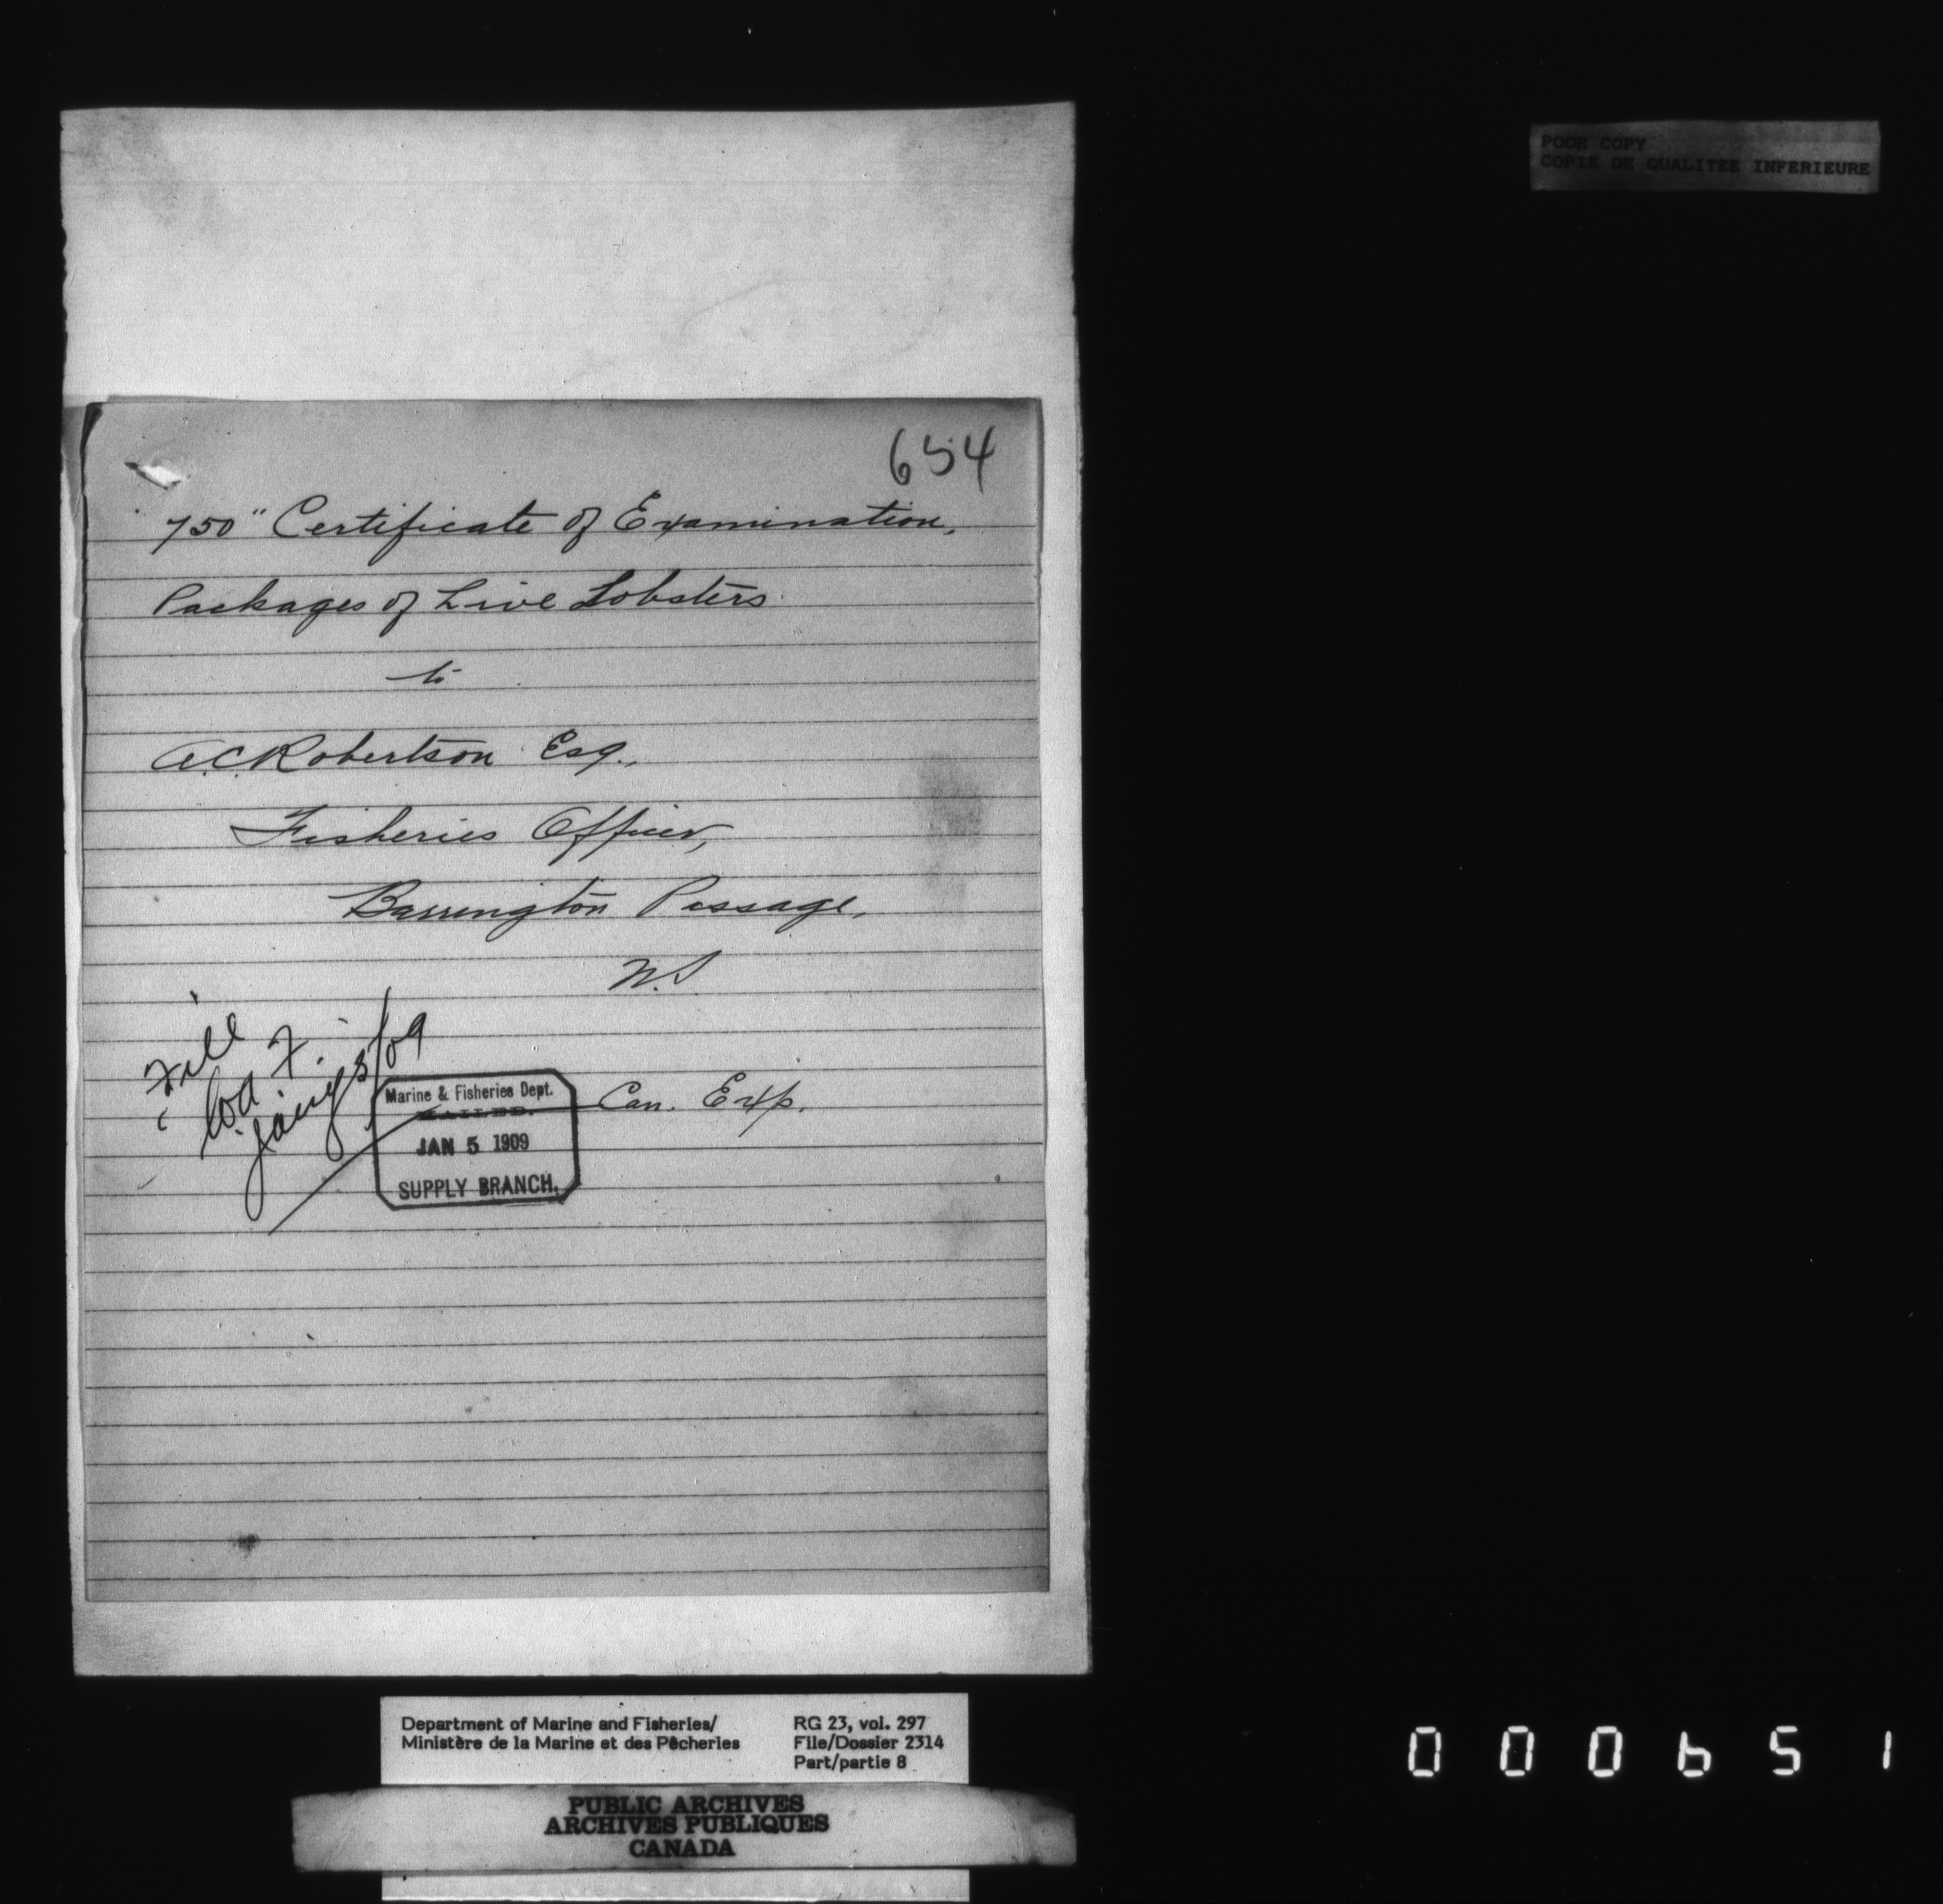 POOR COPY
COPIE DE QUALITEE INFERIEURE
654
750 " Certificate of Examination,
Packages of Live Lobsters
to
A.C. Robertson Esq.,
Fisheries Officer,
Barrington Passage,
N.S
Jany 5/09
Can. Exp.
Marine & Fisheries Dept.
MAILED.
JAN 5 1909
SUPPLY BRANCH.
Department of Marine and Fisheries/
Ministère de la Marine et des Pêcheries
RG 23, vol. 297
File/Dossier 2314
Part/partie 8
PUBLIC ARCHIVES
ARCHIVES PUBLIQUES
CANADA
000651